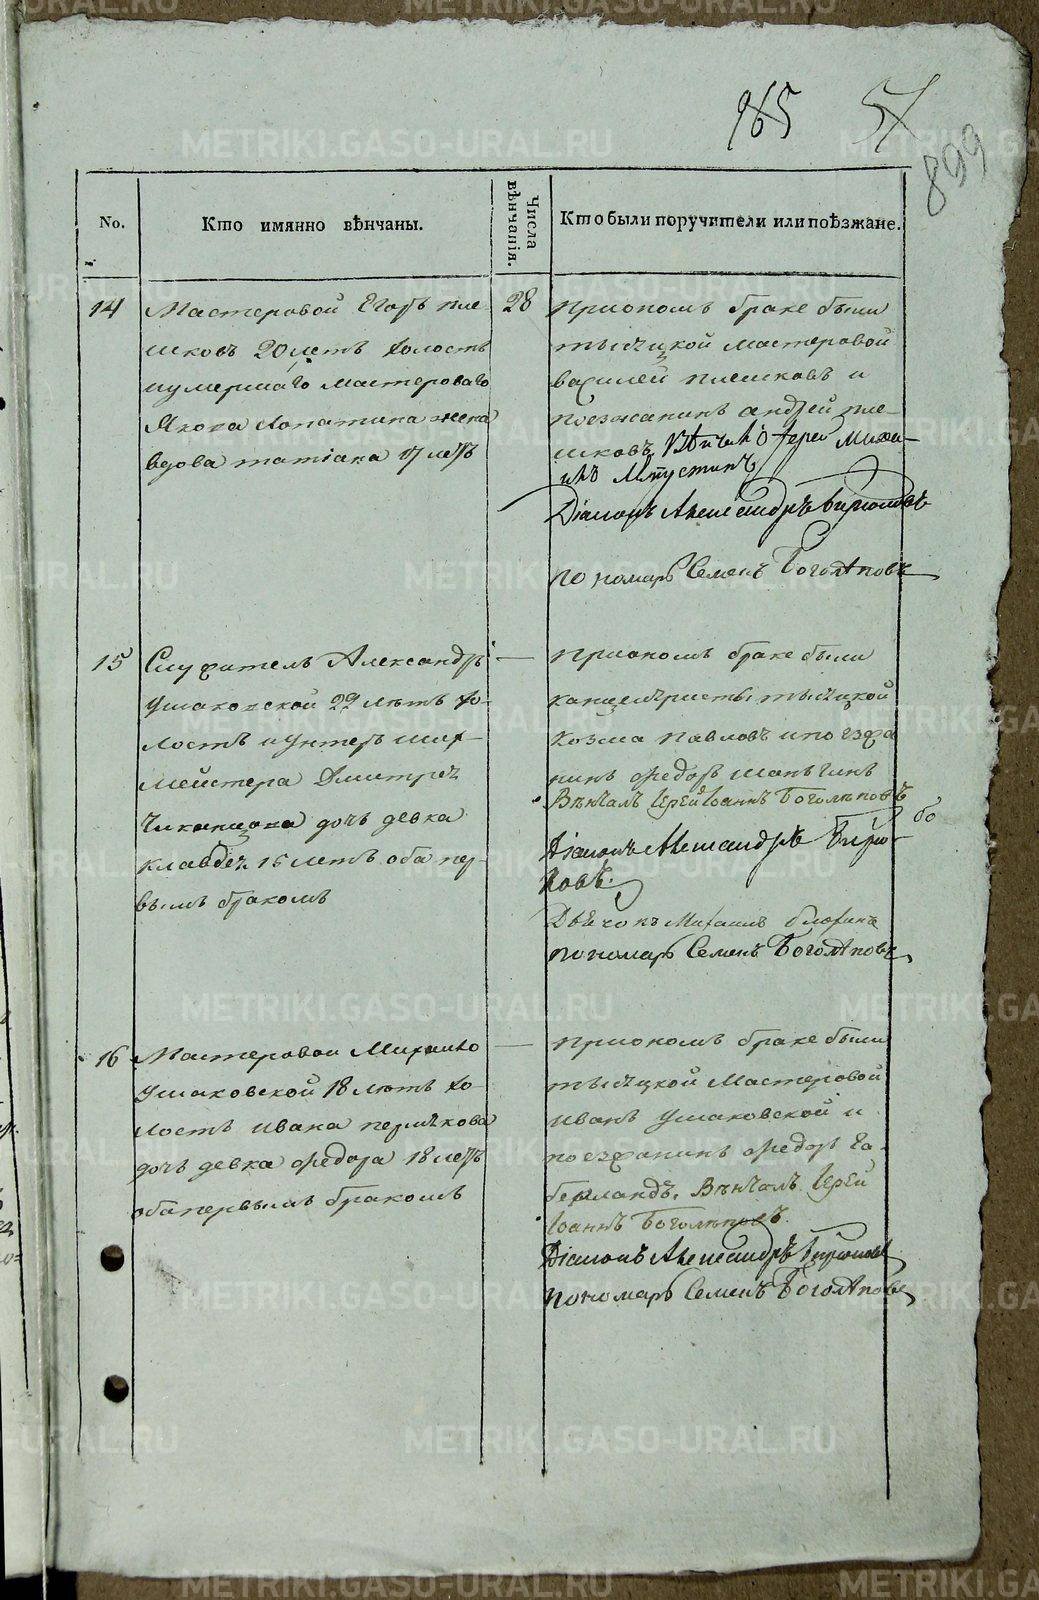 965 57
899
No.
Кто имянно вѣнчаны.
Числа вѣнчанія.
Кто были поручители или поѣзжане.
14
Мастеровой Егоръ пле-
шковъ 20 летъ холостъ
иумершаго мастероваго
Якова Лопатина жена
вдова татіана 17 летъ
28
приономъ браке были
тысецкой мастеровой
василей плешковъ и
поезжанинъ андрей пле-
шковъ Вѣнчалъ Іерей Миха-
илъ
Діаконъ Александръ Бирюковъ
пономарь Семенъ Боголѣповъ
15
Служитель Александръ
Ушаковской 29 лѣтъ хо-
лостъ иунтеръ ших-
мейстера Дмитрея
дочь девка
15 летъ оба пер-
вымъ бракомъ
—
приономъ браке были
канцеляристы тысецкой
Козма павловъ ипоезжа
нинъ федоръ
Вѣнчалъ Іерей Іоаннъ Боголѣповъ
Діаконъ Александръ Бирю-
ковъ.
Дьячокъ Михаилъ
пономарь Семенъ Боголѣповъ
16
Мастеровои Михаило
Ушаковской 18 лѣтъ хо-
лостъ ивана пермякова
дочь девка федора 18 летъ
оба первымъ бракомъ
—
приономъ браке были
тысецкой Мастеровой
иванъ Ушаковской и
поезжанинъ федоръ Га-
берландъ. Вѣнчалъ Іерей
Іоаннъ Боголѣповъ.
Діаконъ Александръ Бирюковъ
пономарь Семенъ Боголѣповъ
METRIKI.GASO-URAL.RU